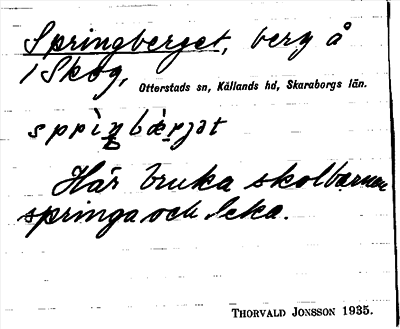 Springberget, berg å
i Skog,
Otterstads sn, Kållands hd, Skaraborgs län.
Här bruka skolbarnen
springa och leka.
THORVALD JONSSON 1935.